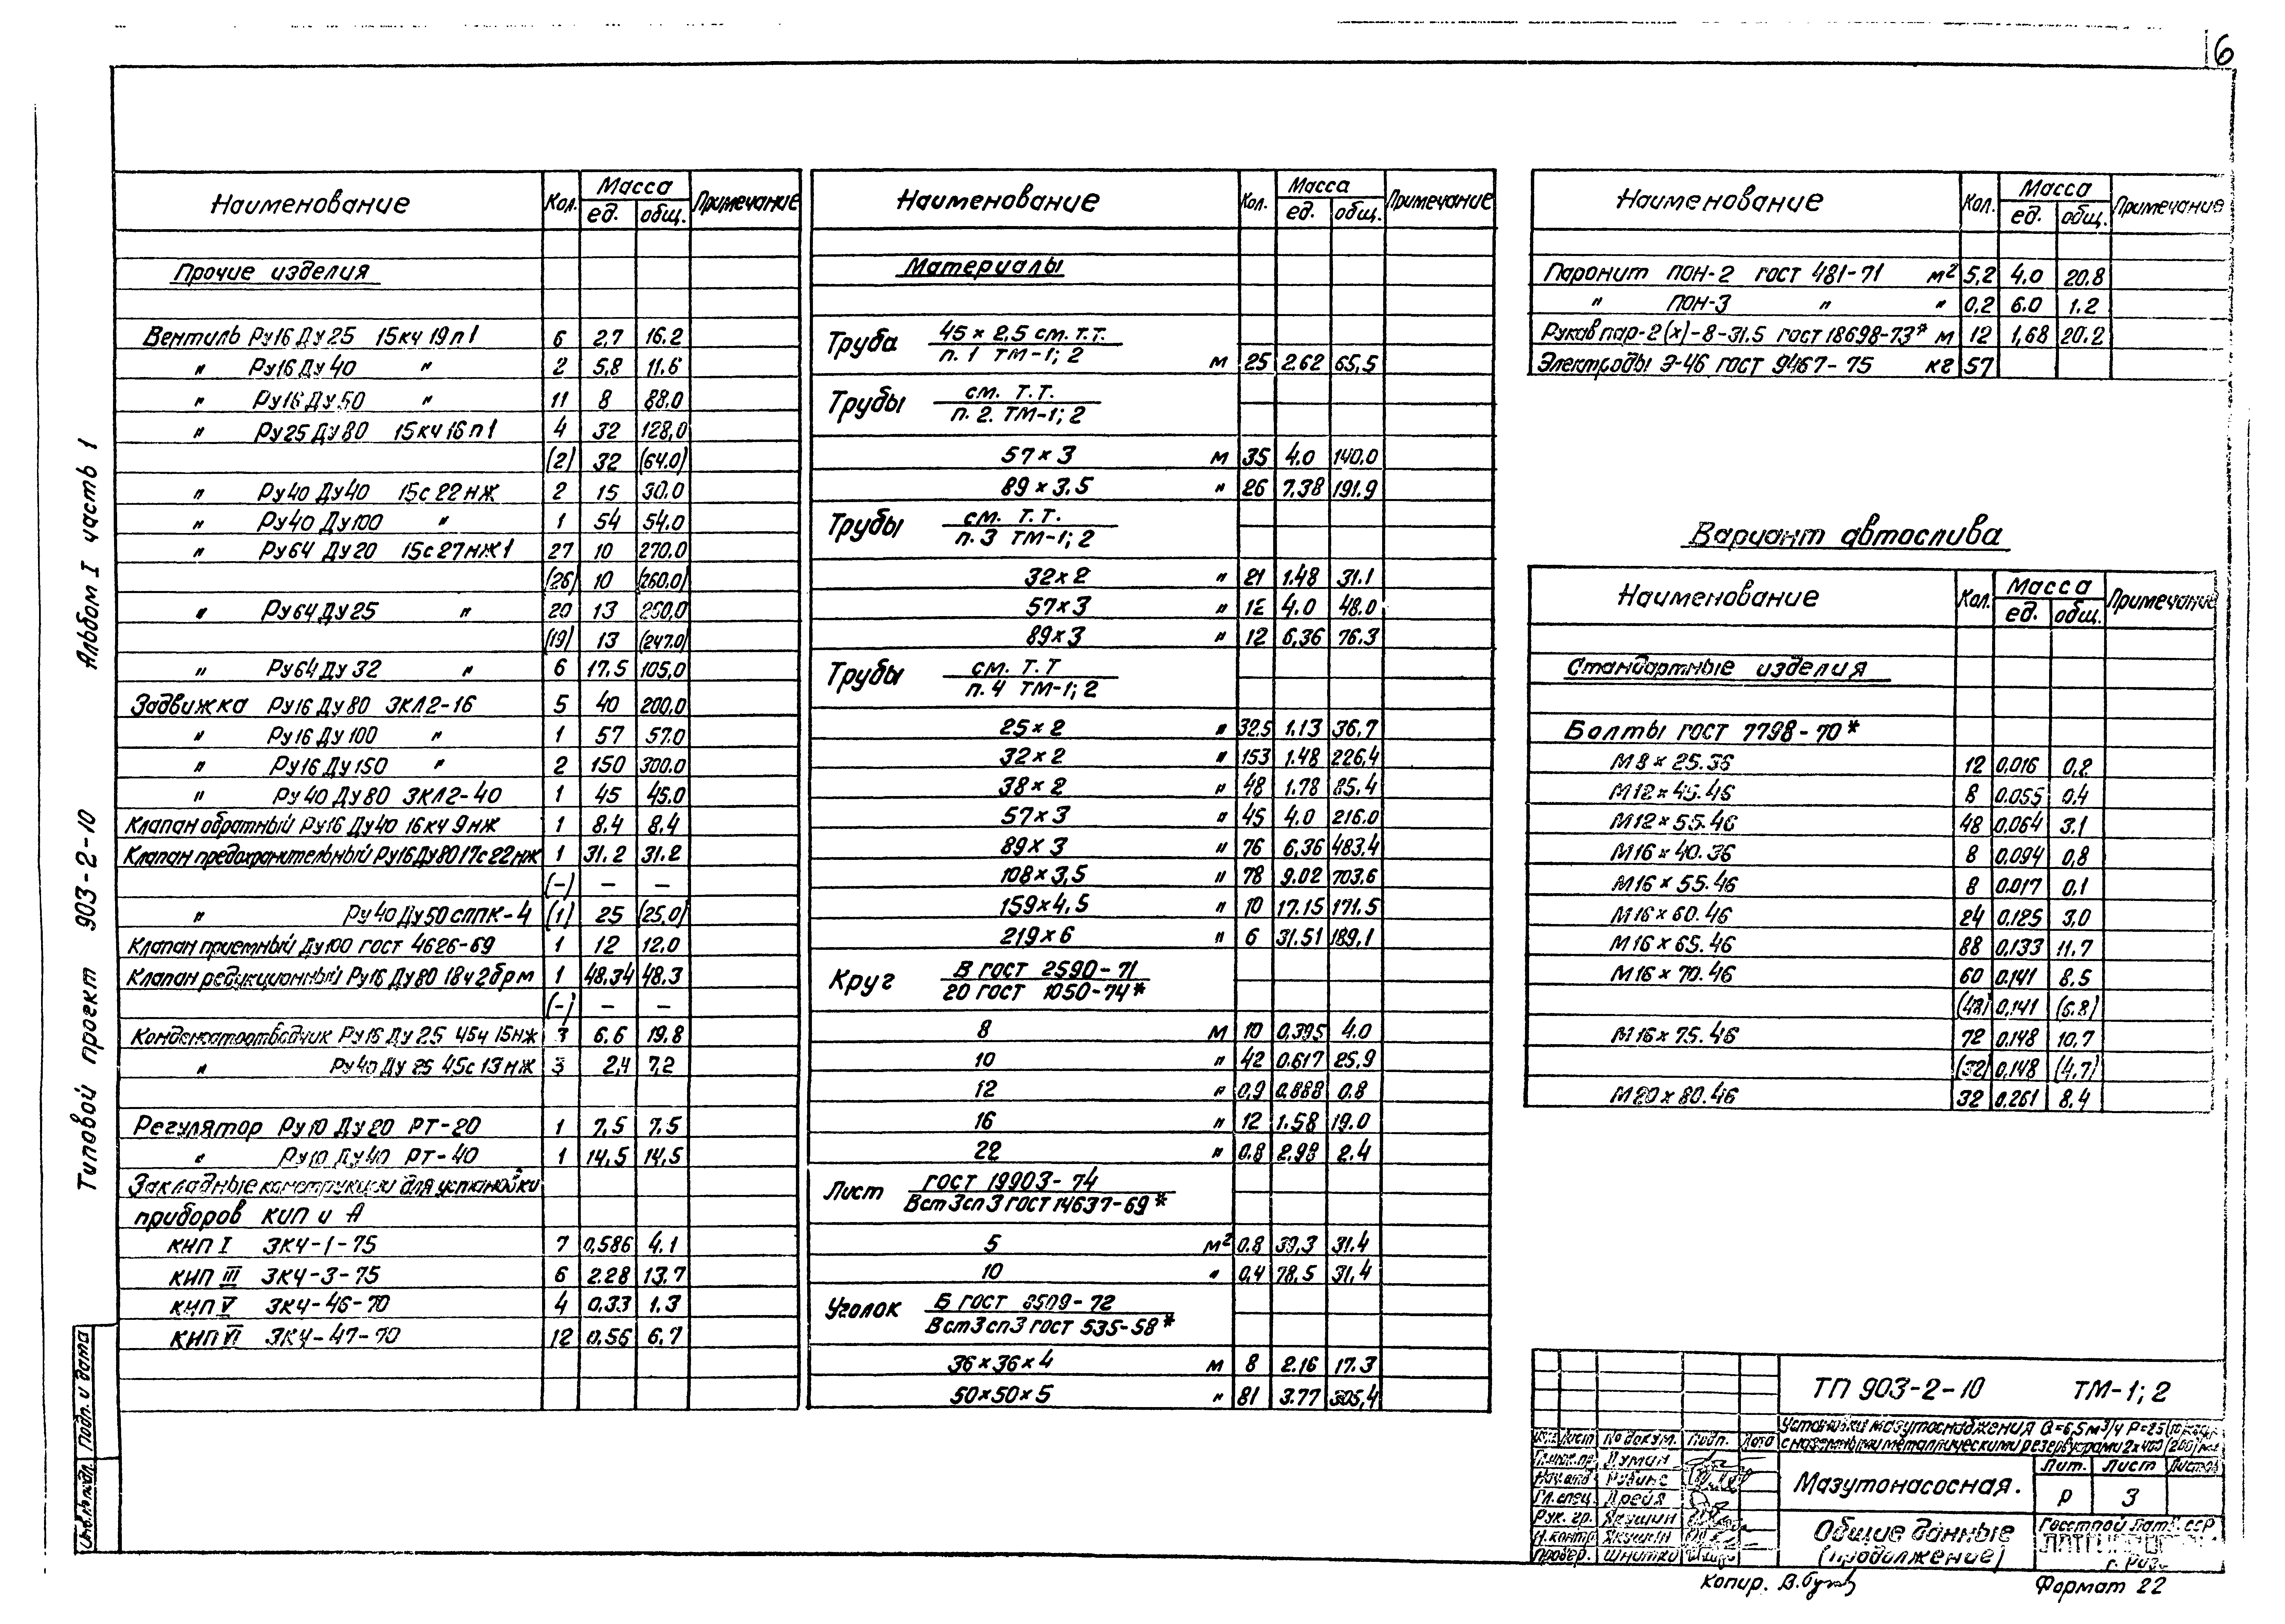 6
Альбом I часть 1
Типовой проект 903-2-10
Подп. и дата
Инв.№ подл.
Наименование Кол. Масса Примечание
ед. общ.
Прочие изделия
Вентиль Ру16 Ду25 15кч19п1 6 2,7 16.2
" Ру16 Ду40 " 2 5,8 11.6
" Ру16 Ду50 " 11 8 88.0
" Ру25 Ду80 15кч16п1 4 32 128,0
(2) 32 (64.0)
" Ру40 Ду40 15с22нж 2 15 30.0
" Ру40 Ду100 " 1 54 54.0
" Ру64 Ду20 15с27нж1 27 10 270.0
(26) 10 (260.0)
" Ру64 Ду25 " 20 13 260.0
(19) 13 (247.0)
" Ру64 Ду32 " 6 17.5 105,0
Задвижка Ру16 Ду80 ЗКЛ2-16 5 40 200.0
" Ру16 Ду100 " 1 57 57.0
" Ру16 Ду150 " 2 150 300.0
" Ру40 Ду80 ЗКЛ2-40 1 45 45.0
Клапан обратный Ру16 Ду40 16кч9нж 1 8.4 8.4
Клапан предохранительный Ру16 Ду80 17с22нж 1 31.2 31.2
(-) – –
" Ру40 Ду50 СППК-4 (1) 25 (25.0)
Клапан приемный Ду100 гост 4626-69 1 12 12.0
Клапан редукционный Ру16 Ду80 18ч2брм 1 48.34 48.3
(-) – –
Конденсатоотводчик Ру16 Ду25 45ч15нж 3 6.6 19.8
" Ру40 Ду25 45с13нж 3 2,4 7,2
Регулятор Ру10 Ду20 РТ-20 1 7,5 7.5
" Ру10 Ду40 РТ-40 1 14,5 14,5
Закладные конструкции для установки
приборов КИП и А
КНП I ЗКЧ-1-75 7 0,586 4.1
КНП III ЗКЧ-3-75 6 2.28 13.7
КНП V ЗКЧ-46-70 4 0.33 1.3
КНП VI ЗКЧ-47-70 12 0.56 6.7
Наименование Кол. Масса Примечание
ед. общ.
Материалы
Труба 45×2,5 см. т.т.
п. 1 ТМ-1; 2 м 25 2.62 65,5
Трубы см. т.т.
п. 2. ТМ-1; 2
57×3 м 35 4.0 140.0
89×3.5 " 26 7.38 191.9
Трубы см. т.т.
п. 3 ТМ-1; 2
32×2 " 21 1.48 31.1
57×3 " 12 4.0 48.0
89×3 " 12 6.36 76.3
Трубы см. т.т
п. 4 ТМ-1; 2
25×2 " 32.5 1.13 36.7
32×2 " 153 1.48 226.4
38×2 " 48 1.78 85.4
57×3 " 45 4.0 216.0
89×3 " 76 6,36 483.4
108×3,5 " 78 9.02 703,6
159×4,5 " 10 17.15 171.5
219×6 " 6 31.51 189,1
Круг В гост 2590-71
20 гост 1050-74*
8 м 10 0,395 4.0
10 " 42 0.617 25.9
12 " 0,9 0.888 0.8
16 " 12 1.58 19.0
22 " 0.8 2.98 2.4
Лист гост 19903-74
Вст3сп3 гост 14637-69*
5 м² 0.8 39,3 31.4
10 " 0,4 78,5 31,4
Уголок Б гост 8509-72
Вст3сп3 гост 535-58*
36×36×4 м 8 2.16 17.3
50×50×5 " 81 3.77 305,4
Наименование Кол. Масса Примечание
ед. общ.
Паронит ПОН-2 гост 481-71 м² 5,2 4.0 20.8
" ПОН-3 " " 0.2 6.0 1.2
Рукав пар-2(х)-8-31.5 гост 18698-73* м 12 1,68 20.2
Электроды Э-46 гост 9467-75 кг 57
Вариант автослива
Наименование Кол. Масса Примечание
ед. общ.
Стандартные изделия
Болты гост 7798-70*
М8×25.36 12 0,016 0,2
М12×45.46 8 0.055 0,4
М12×55.46 48 0,064 3.1
М16×40.36 8 0.094 0,8
М16×55.46 8 0.017 0,1
М16×60.46 24 0.125 3,0
М16×65.46 88 0,133 11.7
М16×70.46 60 0.141 8,5
(48) 0,141 (6.8)
М16×75.46 72 0.148 10,7
(32) 0,148 (4,7)
М20×80.46 32 0,261 8.4
ТП 903-2-10 ТМ-1; 2
Установки мазутоснабжения Q=6,5м³/ч Р=25
с наземными металлическими резервуарами 2×400 (200) м³
Лист № докум. Подп. Дата
Думан
Нач. отд Рудинс
Гл. спец. Дрейя
Рук. гр. Якушин
Н. контр Якушин
Провер. Шнитко
Мазутонасосная.
Лит. Лист Листов
Р 3
Общие данные
(продолжение)
Госстрой Латв. ССР
Копир. Формат 22